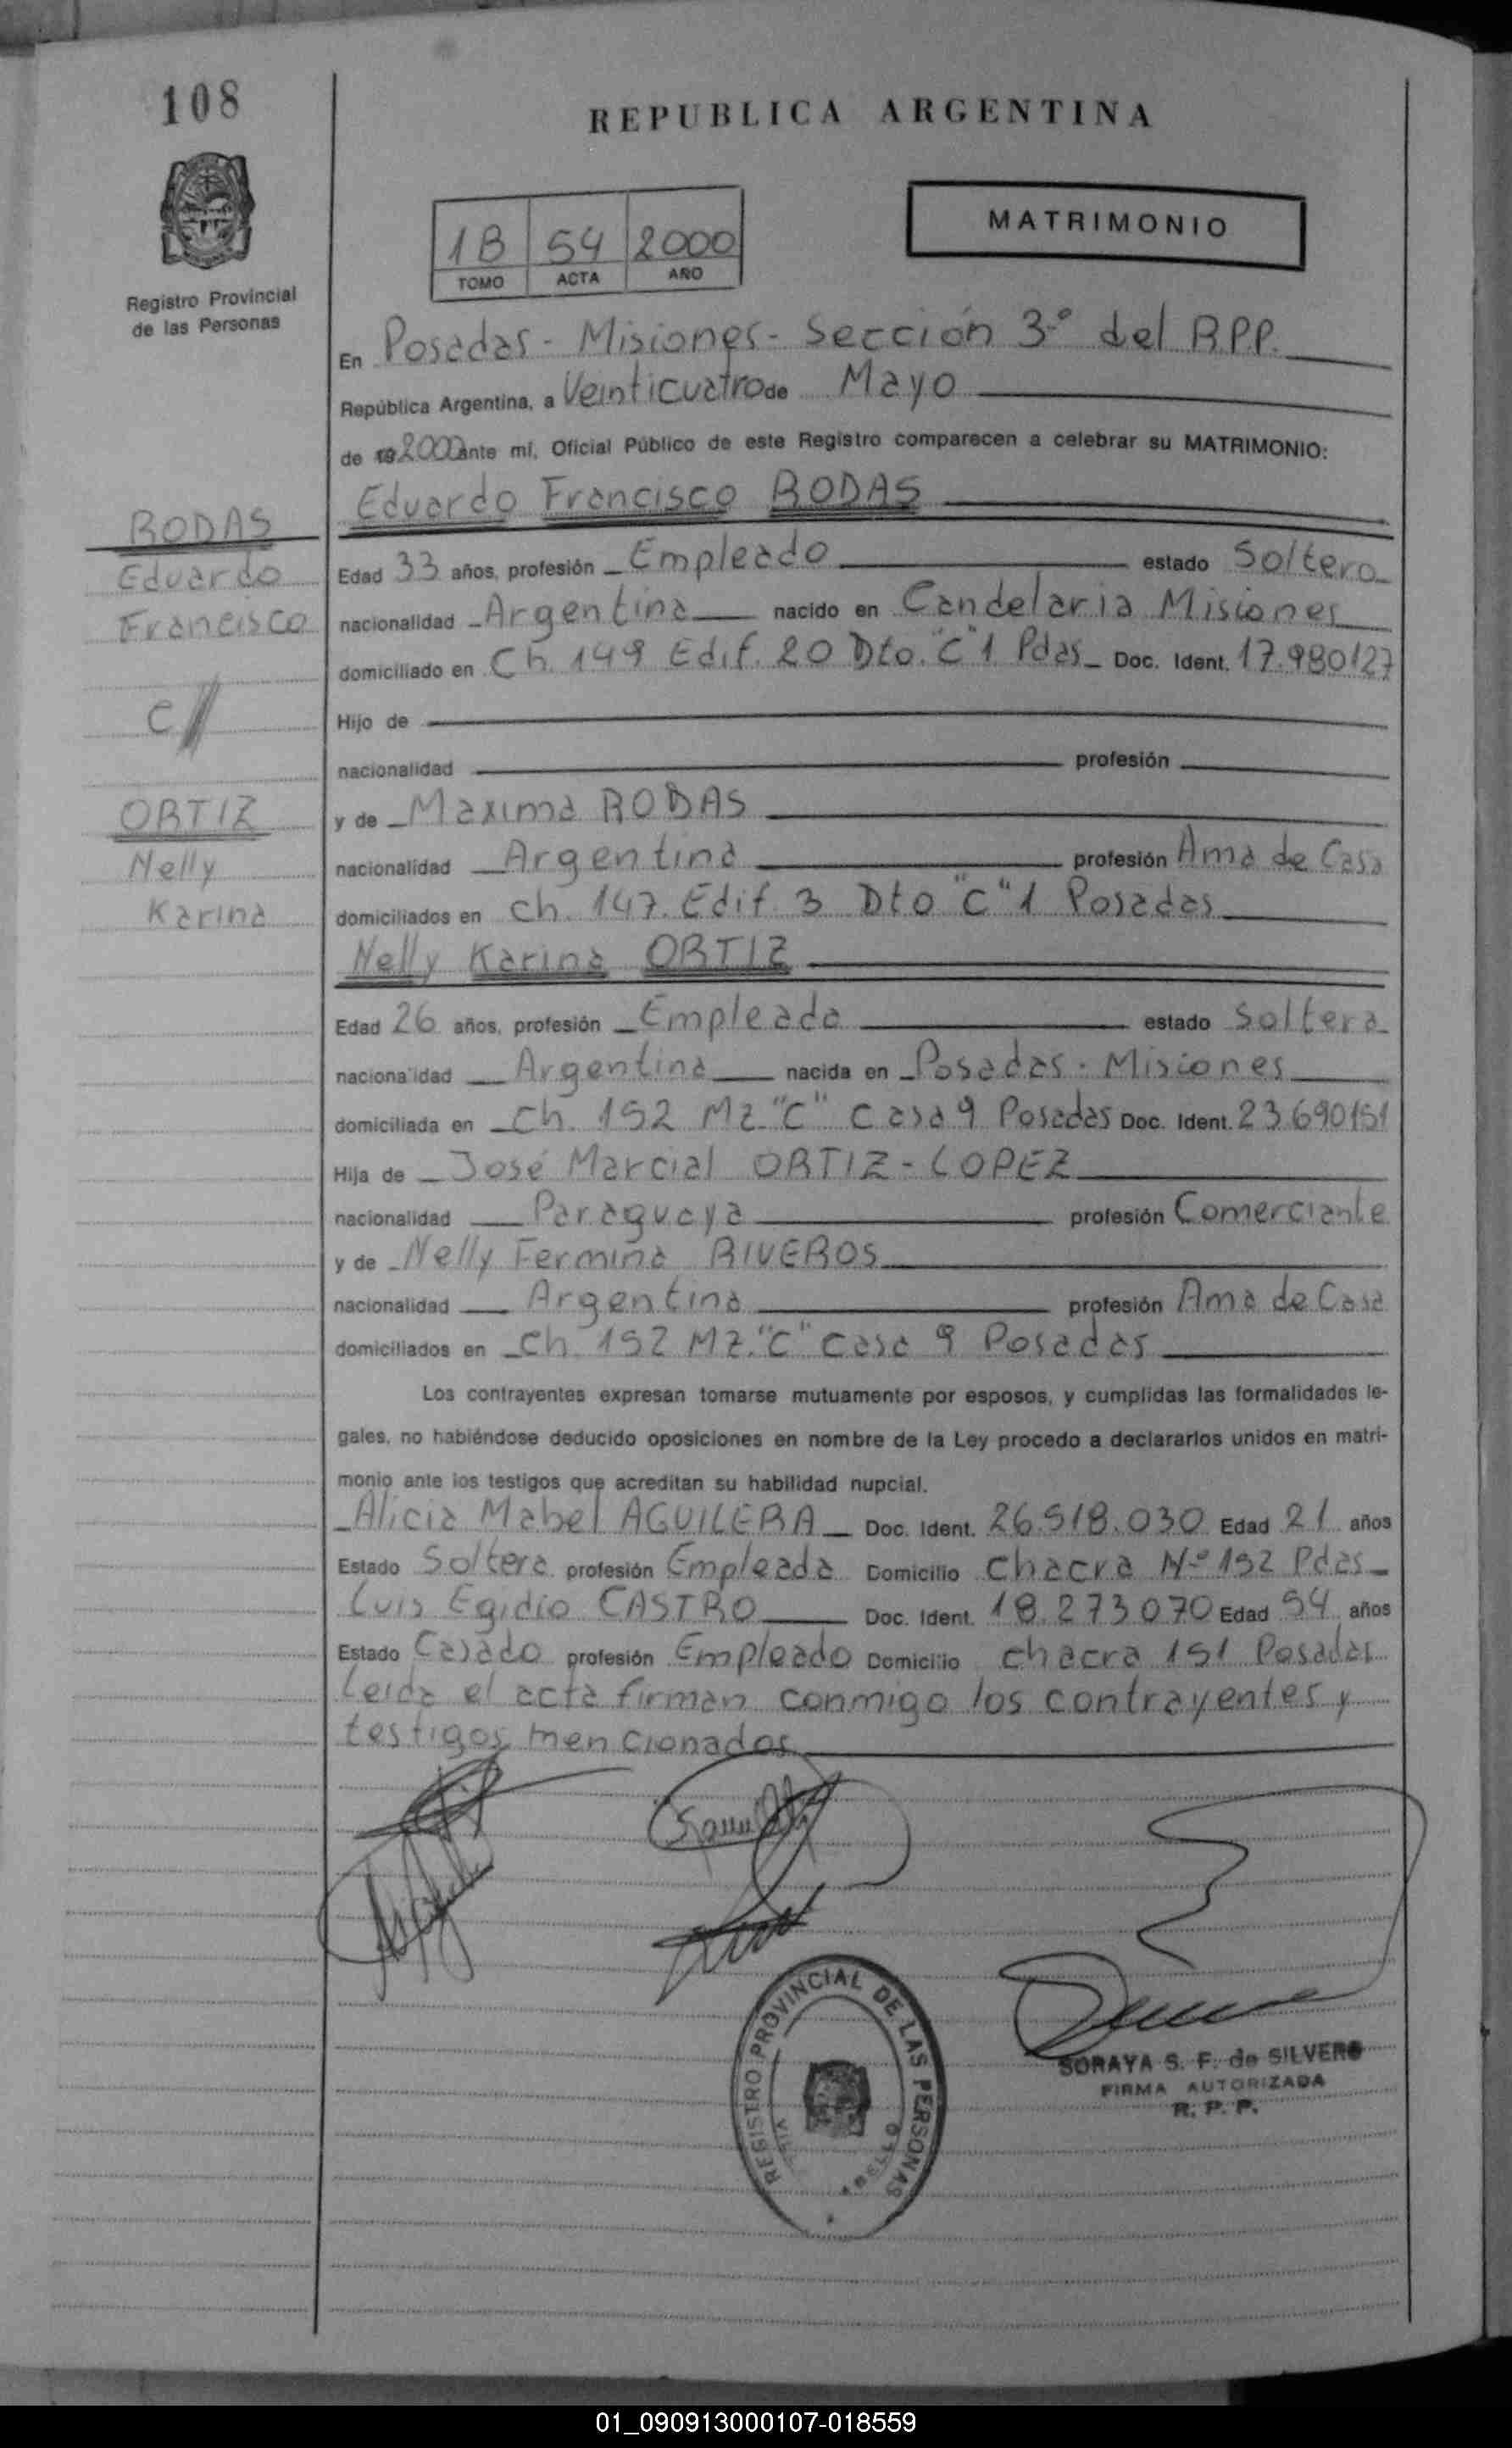 108
REPUBLICA ARGENTINA
MATRIMONIO
1B 54 2000
TOMO ACTA AÑO
Registro Provincial
de las Personas
En Posadas - Misiones - Sección 3-º del R.P.P.
República Argentina, a Veinticuatro de Mayo
de 2000 ante mí, Oficial Público de este Registro comparecen a celebrar su MATRIMONIO:
Eduardo Francisco RODAS
RODAS
Eduardo
Francisco
Edad 33 años, profesión Empleado estado Soltero
nacionalidad Argentina nacido en Candelaria Misiones
domiciliado en Ch. 149 Edif. 20 Dto. "C" 1 Pdas Doc. Ident. 17.980127
C//
Hijo de
nacionalidad profesión
ORTIZ
Nelly
Karina
y de Maxima RODAS
nacionalidad Argentina profesión Ama de Casa
domiciliados en Ch. 147. Edif. 3 Dto "C" 1 Posadas
Nelly Karina ORTIZ
Edad 26 años, profesión Empleada estado Soltera
nacionalidad Argentina nacida en Posadas - Misiones
domiciliada en Ch. 152 Mz. "C" Casa 9 Posadas Doc. Ident. 23.690151
Hija de José Marcial ORTIZ - LOPEZ
nacionalidad Paraguaya profesión Comerciante
y de Nelly Fermina RIVEROS
nacionalidad Argentina profesión Ama de Casa
domiciliados en Ch. 152 Mz. "C" Casa 9 Posadas
Los contrayentes expresan tomarse mutuamente por esposos, y cumplidas las formalidades le-
gales, no habiéndose deducido oposiciones en nombre de la Ley procedo a declararlos unidos en matri-
monio ante los testigos que acreditan su habilidad nupcial.
Alicia Mabel AGUILERA Doc. Ident. 26.518.030 Edad 21 años
Estado Soltera profesión Empleada Domicilio Chacra Nº 152 Pdas
Luis Egidio CASTRO Doc. Ident. 18.273.070 Edad 54 años
Estado Casado profesión Empleado Domicilio chacra 151 Posadas
Leida el acta firman conmigo los contrayentes y
testigos mencionados
REGISTRO PROVINCIAL DE LAS PERSONAS
SORAYA S. F. de SILVERO
FIRMA AUTORIZADA
R. P. P.
01_090913000107-018559